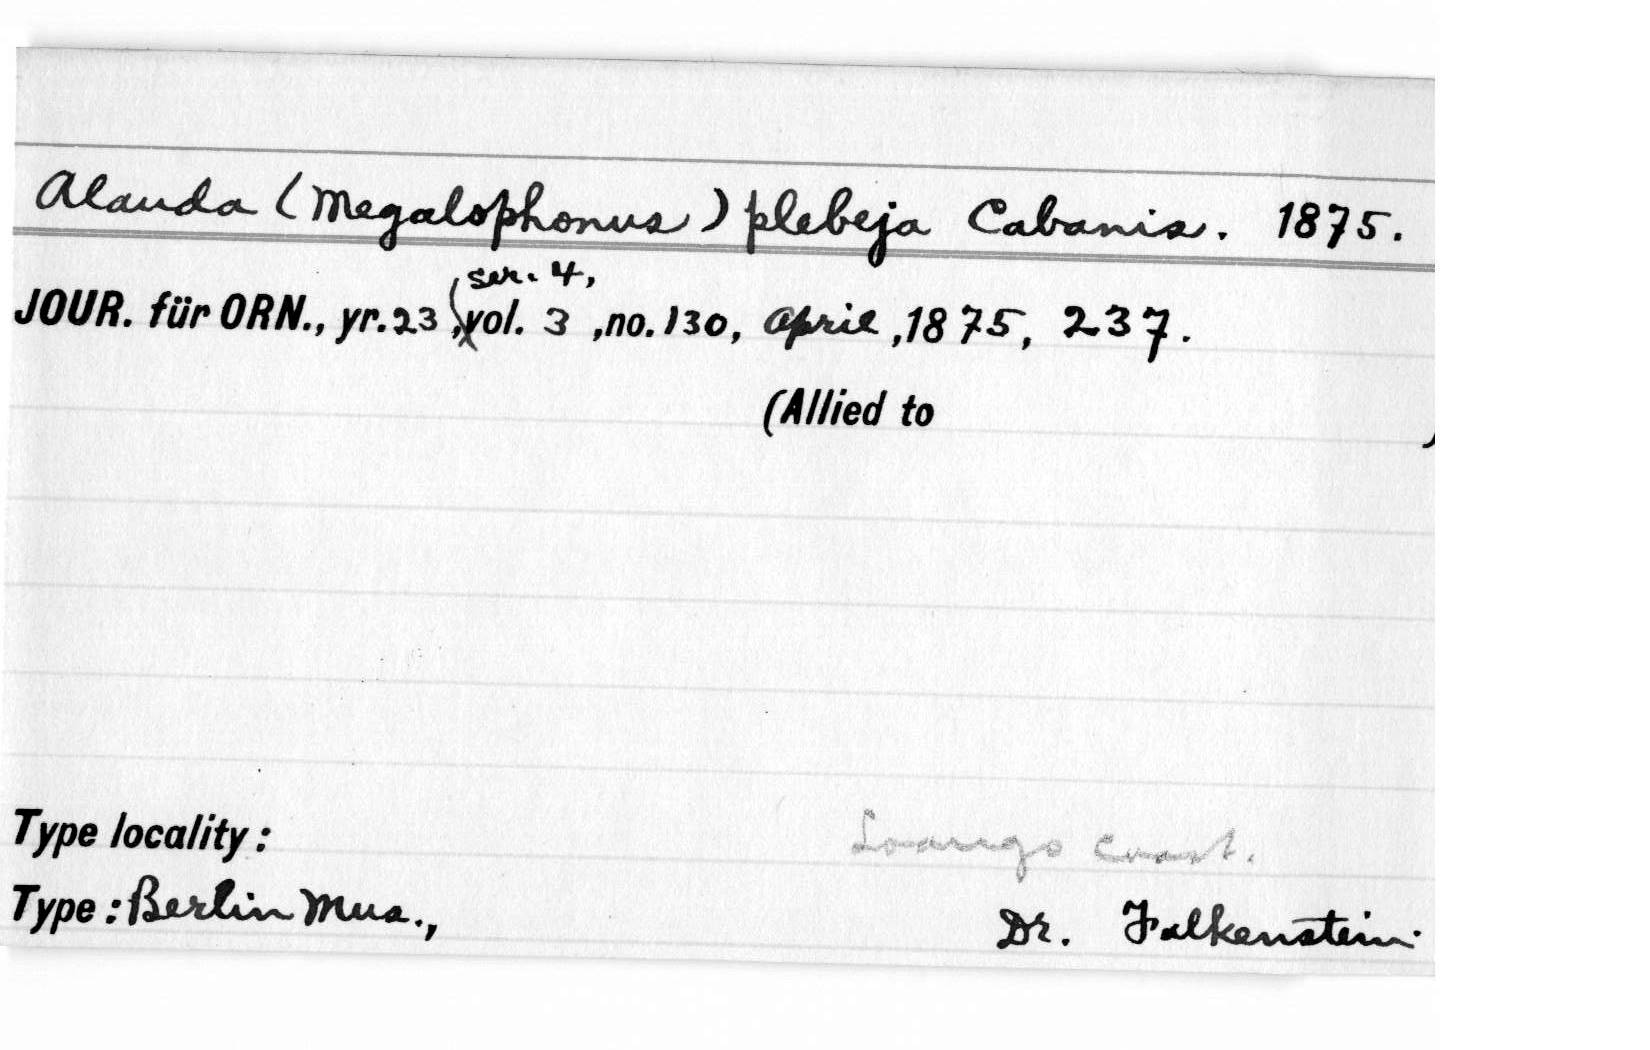 Alauda (Megalophonus) plebeja Cabanis. 1875.
ser. 4,
JOUR. für ORN., yr.23, (vol. 3 ,no.130, April ,1875, 237.
(Allied to )
Type locality: Loango coast.
Type: Berlin Mus., Dr. Falkenstein.